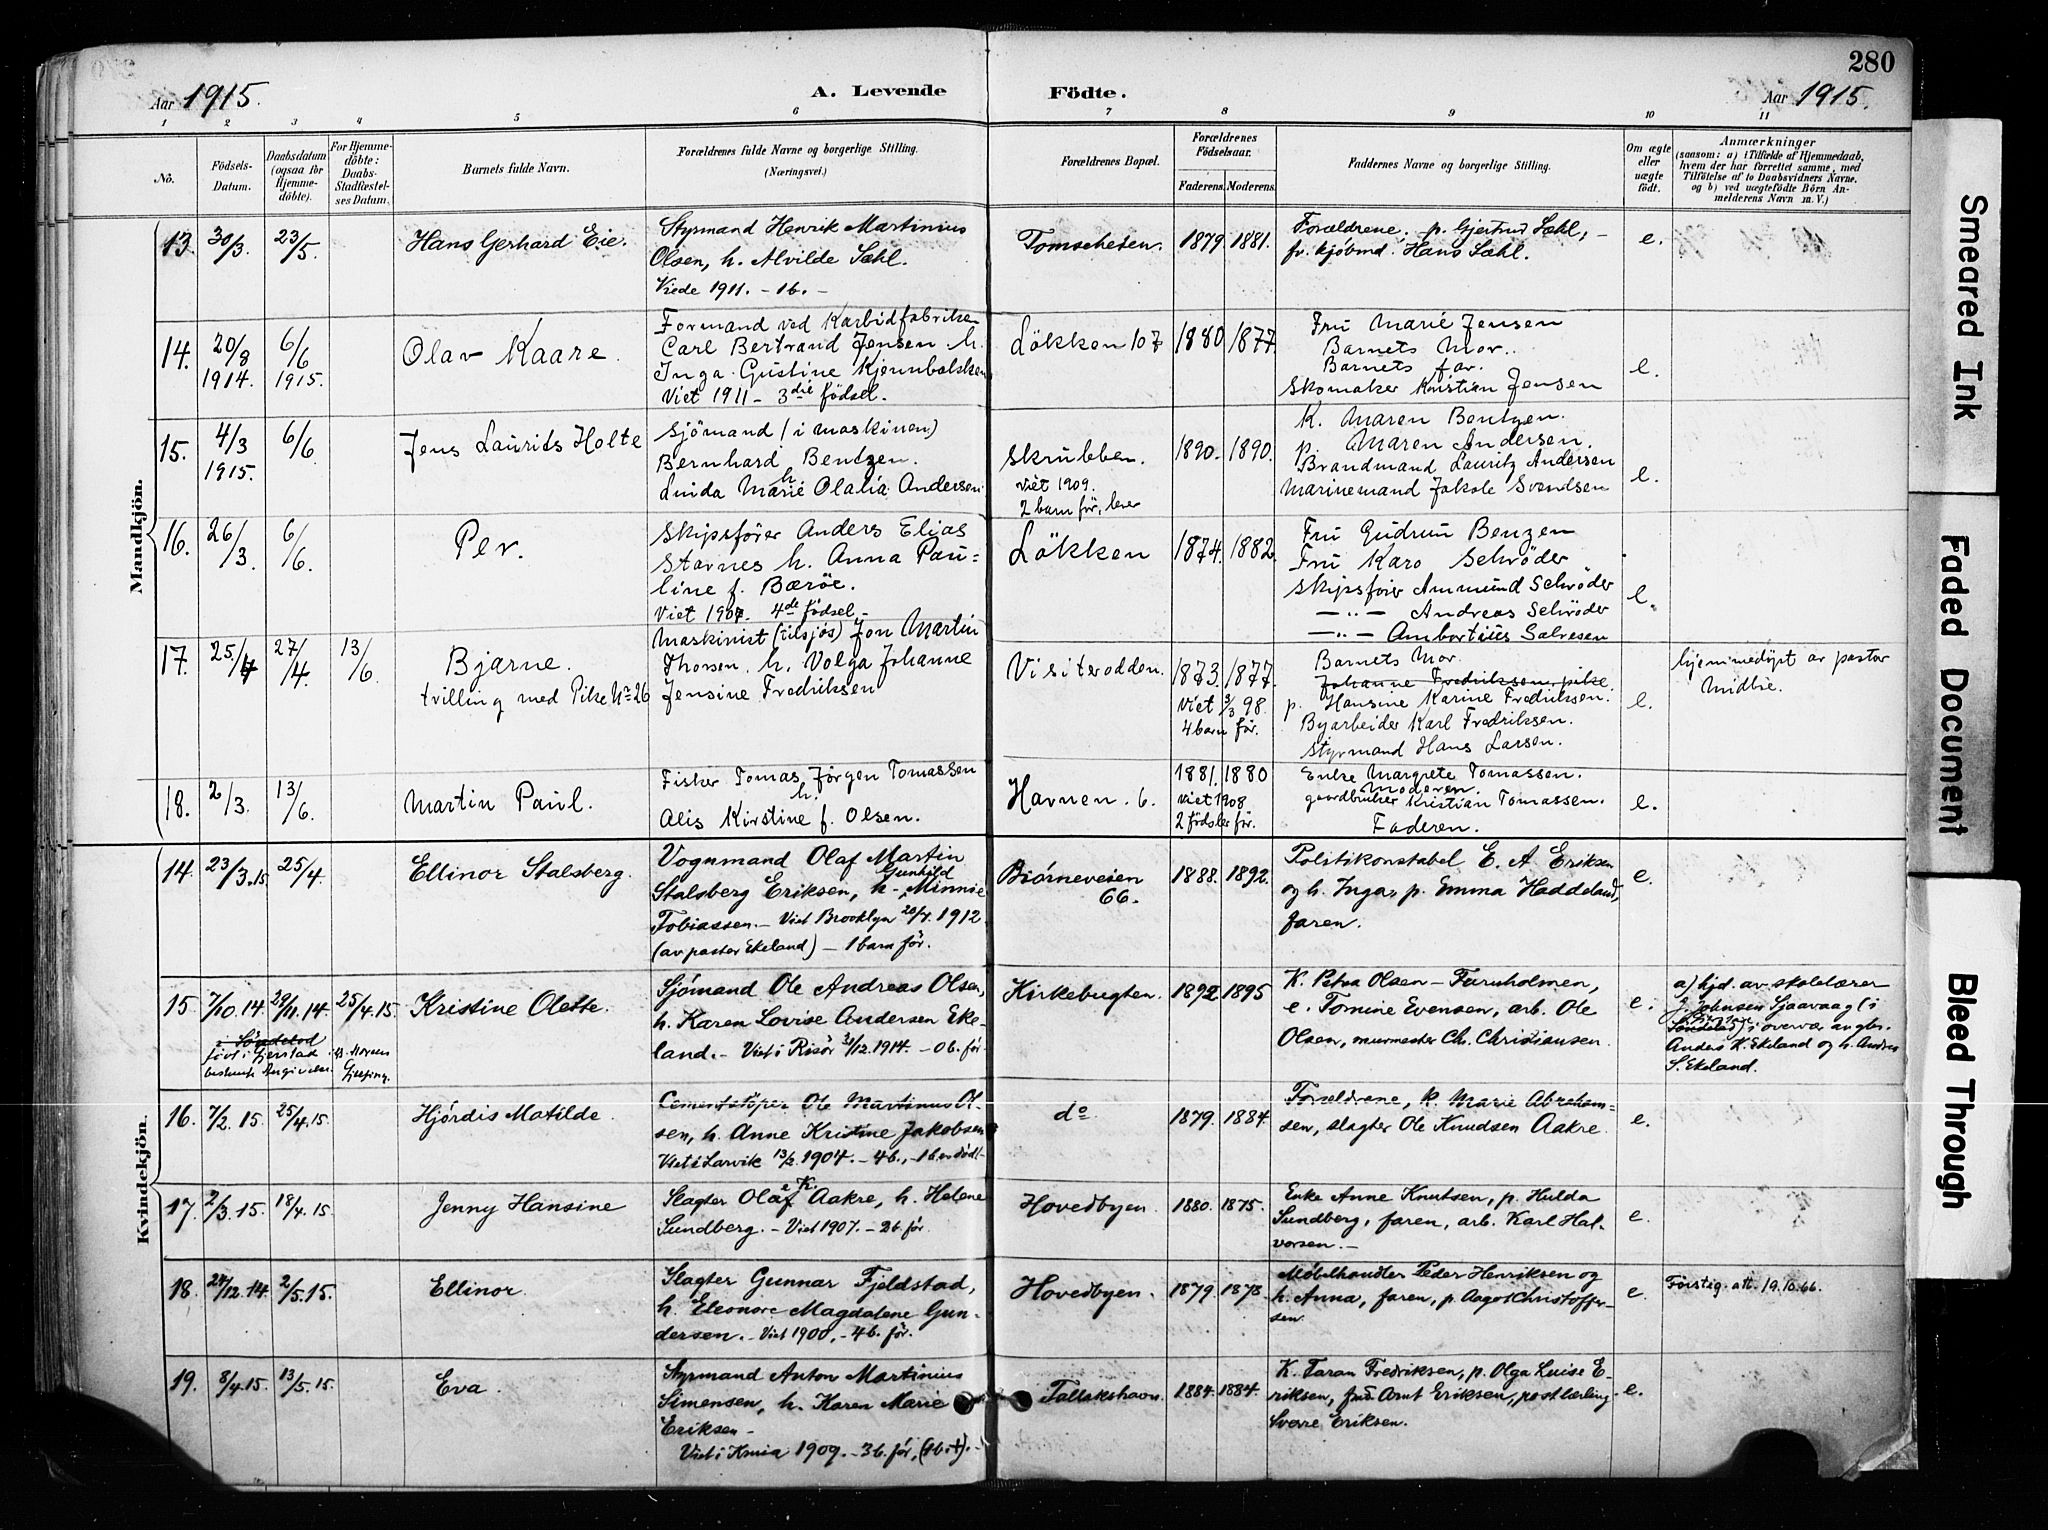 280
Aar 1915.
A. Levende Födte.
Aar 1915.
1 2 3 4 5 6 7 8 9 10 11
No.
Födsels-Datum.
Daabsdatum (ogsaa for Hjemme-döbte).
For Hjemme-döbte: Daabs-Stadfæstel-ses Datum.
Barnets fulde Navn.
Forældrenes fulde Navne og borgerlige Stilling.
(Næringsvei.)
Forældrenes Bopæl.
Forældrenes Födselsaar.
Faderens. Moderens.
Faddernes Navne og borgerlige Stilling.
Om ægte eller uægte födt.
Anmærkninger
(saasom: a) i Tilfælde af Hjemmedaab,
hvem der har forrettet samme, med
Tilföielse af to Daabsvidners Navne,
og b) ved uægtefödte Börn An-
melderens Navn m. V.)
Mandkjön.
13. 30/3. 23/5. Hans Gerhard Eie.
Styrmand Henrik Martinius
Olsen, h. Alvilde Sæhl.
Viede 1911. - 1b. -
Tomschesen. 1879. 1881.
Forældrene. p. Gjertrud Sæhl, -
fv. kjöbmd. Hans Sæhl.
e.
14. 20/8 1914. 6/6 1915. Olav Kaare.
Formand ved Karbidfabriken
Carl Bertrand Jensen h.
Inga Gustine Kjennbolsken
Viet 1911 - 3die födsel.
Lökken 107 1880 1877.
Fru Marie Jensen
Barnets Mor.
Barnets far.
Skomaker Kristian Jensen
e.
15. 4/3 1915. 6/6 Jens Laurits Holte
Sjömand (i maskinen)
Bernhard Bentzen.
h
Linda Marie Olalia Andersen
Skrubben.
viet 1909.
2 barn för, lever
1890. 1890.
K. Maren Bentzen.
p. Maren Andersen.
Brandmand Lauritz Andersen
Marinemand Jakole Svendsen
e.
16. 26/3. 6/6. Per.
Skipsfører Anders Elias
Starnes h. Anna Pau=
line f. Bærøe.
Viet 1907. 4de födsel -
Lökken 1874. 1882.
Fru Gudrun Benzen
Fru Karo Schrøder
Skipsfører Ammund Schrøder
— „ — Andreas Schrøder
— „ — Ambortius Salvesen
e.
17. 25/4 27/4. 13/6 Bjarne.
trilling med Pike No 26
Maskinist (tilsjøs) Jon Martin
Thorsen. h. Volga Johanne
Jensine Fredriksen
Visiterodden. 1873. 1877.
viet 3/3 98.
4 barn för.
Barnets Mor.
Johanne Fredriksen, pike
p. Hansine Karine Fredriksen.
Byarbeider Karl Fredriksen.
Styrmand Hans Larsen.
e.
hjemmedöpt av pastor
Midbøe.
18. 2/3. 13/6. Martin Paul.
Fisker Tomas Jørgen Tomassen
h.
Alis Kirstine f. Olsen.
Havnen. 6. 1881. 1880
viet 1908
2 födsler för.
Enke Margrete Tomassen.
Moderen.
gaardbruker Kristian Tomassen.
Faderen.
e.
Kvindekjön.
14. 23/3.15 25/4. Ellinor Stalsberg.
Vognmand Olaf Martin
Gunhild
Stalsberg Eriksen, h. Minnie
Tobiassen. - Viet Brooklyn 20/4. 1912
(av pastor Ekeland) - 1 barn för.
Bjørneveien
66.
1888. 1892.
Politikonstabel E. A. Eriksen
og h. Inga, p. Emma Haddeland,
faren.
e.
15 7/10.14 29/11.14 25/4.15. Kristine Olette.
i Söndelod
födt i Gjerstad
Sjömand Ole Andreas Olsen,
h. Karen Lovise Andersen Eke-
land. - Viet i Risør 31/12.1914. - 0b. för.
Kirkebugten. 1892 1895
K. Petra Olsen - Furuholmen,
e. Tomine Evensen, arb. Ole
Olsen, murmester Ch. Christiansen.
e.
a) hjd. av skolelærer
J. Johnsen Sjaavaag (i
Söndelod) i overvær av gbr.
Anders K. Ekeland og h. Anders
S. Ekeland.
16. 7/2.15. 25/4.15. Hjördis Matilde.
Cementstöper Ole Martinus Ol-
sen, h. Anne Kristine Jakobsen
Viet i Larvik 13/2. 1904. - 4b., - 1b. er död.
do 1879. 1884.
Forældrene, k. Marie Abraham=
sen, slagter Ole Knudsen Aakre.
e.
17. 2/3.15. 18/4.15. Jenny Hansine
Slagter Olaf K. Aakre, h. Helene
Sundberg. - Viet 1907. - 2b. för
Hovedbyen. 1880. 1875.
Enke Anne Knutsen, p. Hulda
Sundberg, faren, arb. Karl Hal-
vorsen. -
e.
18. 27/12.14. 2/5.15. Ellinor.
Slagter Gunnar Fjeldstad,
h. Eleonore Magdalene Gun-
dersen. - Viet 1900. - 4b. för.
Hovedbyen. 1879. 1878.
Møbelhandler Peder Henriksen og
h. Anna, faren, p. Aagot Christoffer-
sen.
e.
Førstig. att. 19.10.66.
19. 8/4.15. 13/5.15. Eva.
Styrmand Anton Martinius
Simensen, h. Karen Marie
Eriksen -
Viet i Krnia 1909. - 3b. för, (1b. +). -
Tallakshavn. 1884. 1884.
K. Taran Fredriksen, p. Olga Luise E-
riksen, frue Arnt Eriksen, postlærling
Sverre Eriksen.
e.
Smeared Ink
Faded Document
Bleed Through